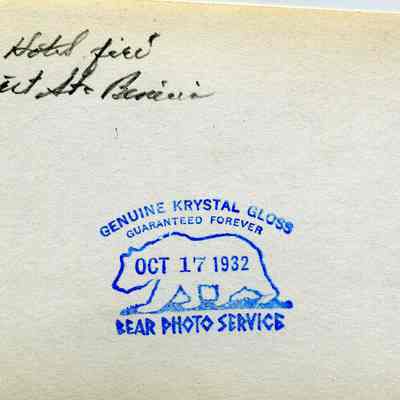 Hotel fire
St. Benicia
GENUINE KRYSTAL GLOSS
GUARANTEED FOREVER
OCT 17 1932
BEAR PHOTO SERVICE